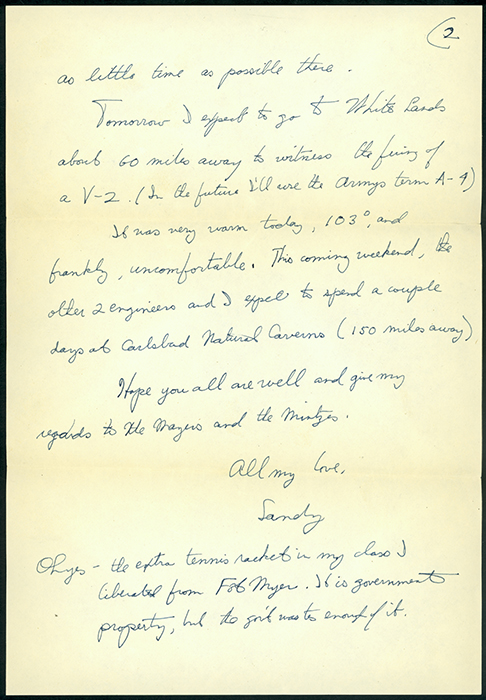 (2
as little time as possible there.
Tomorrow I expect to go to White Sands
about 60 miles away to witness the firing of
a V-2. (In the future I'll use the Army's term A-4)
It was very warm today, 103°, and
frankly, uncomfortable. This coming weekend, the
other 2 engineers and I expect to spend a couple
days at Carlsbad Natural Caverns (150 miles away)
Hope you all are well and give my
regards to the Mayers and the Mintzes.
All my love,
Sandy
Oh yes - the extra tennis racket in my class I
liberated from Fort Myer. It is government
property, but the gov't wastes enough of it.